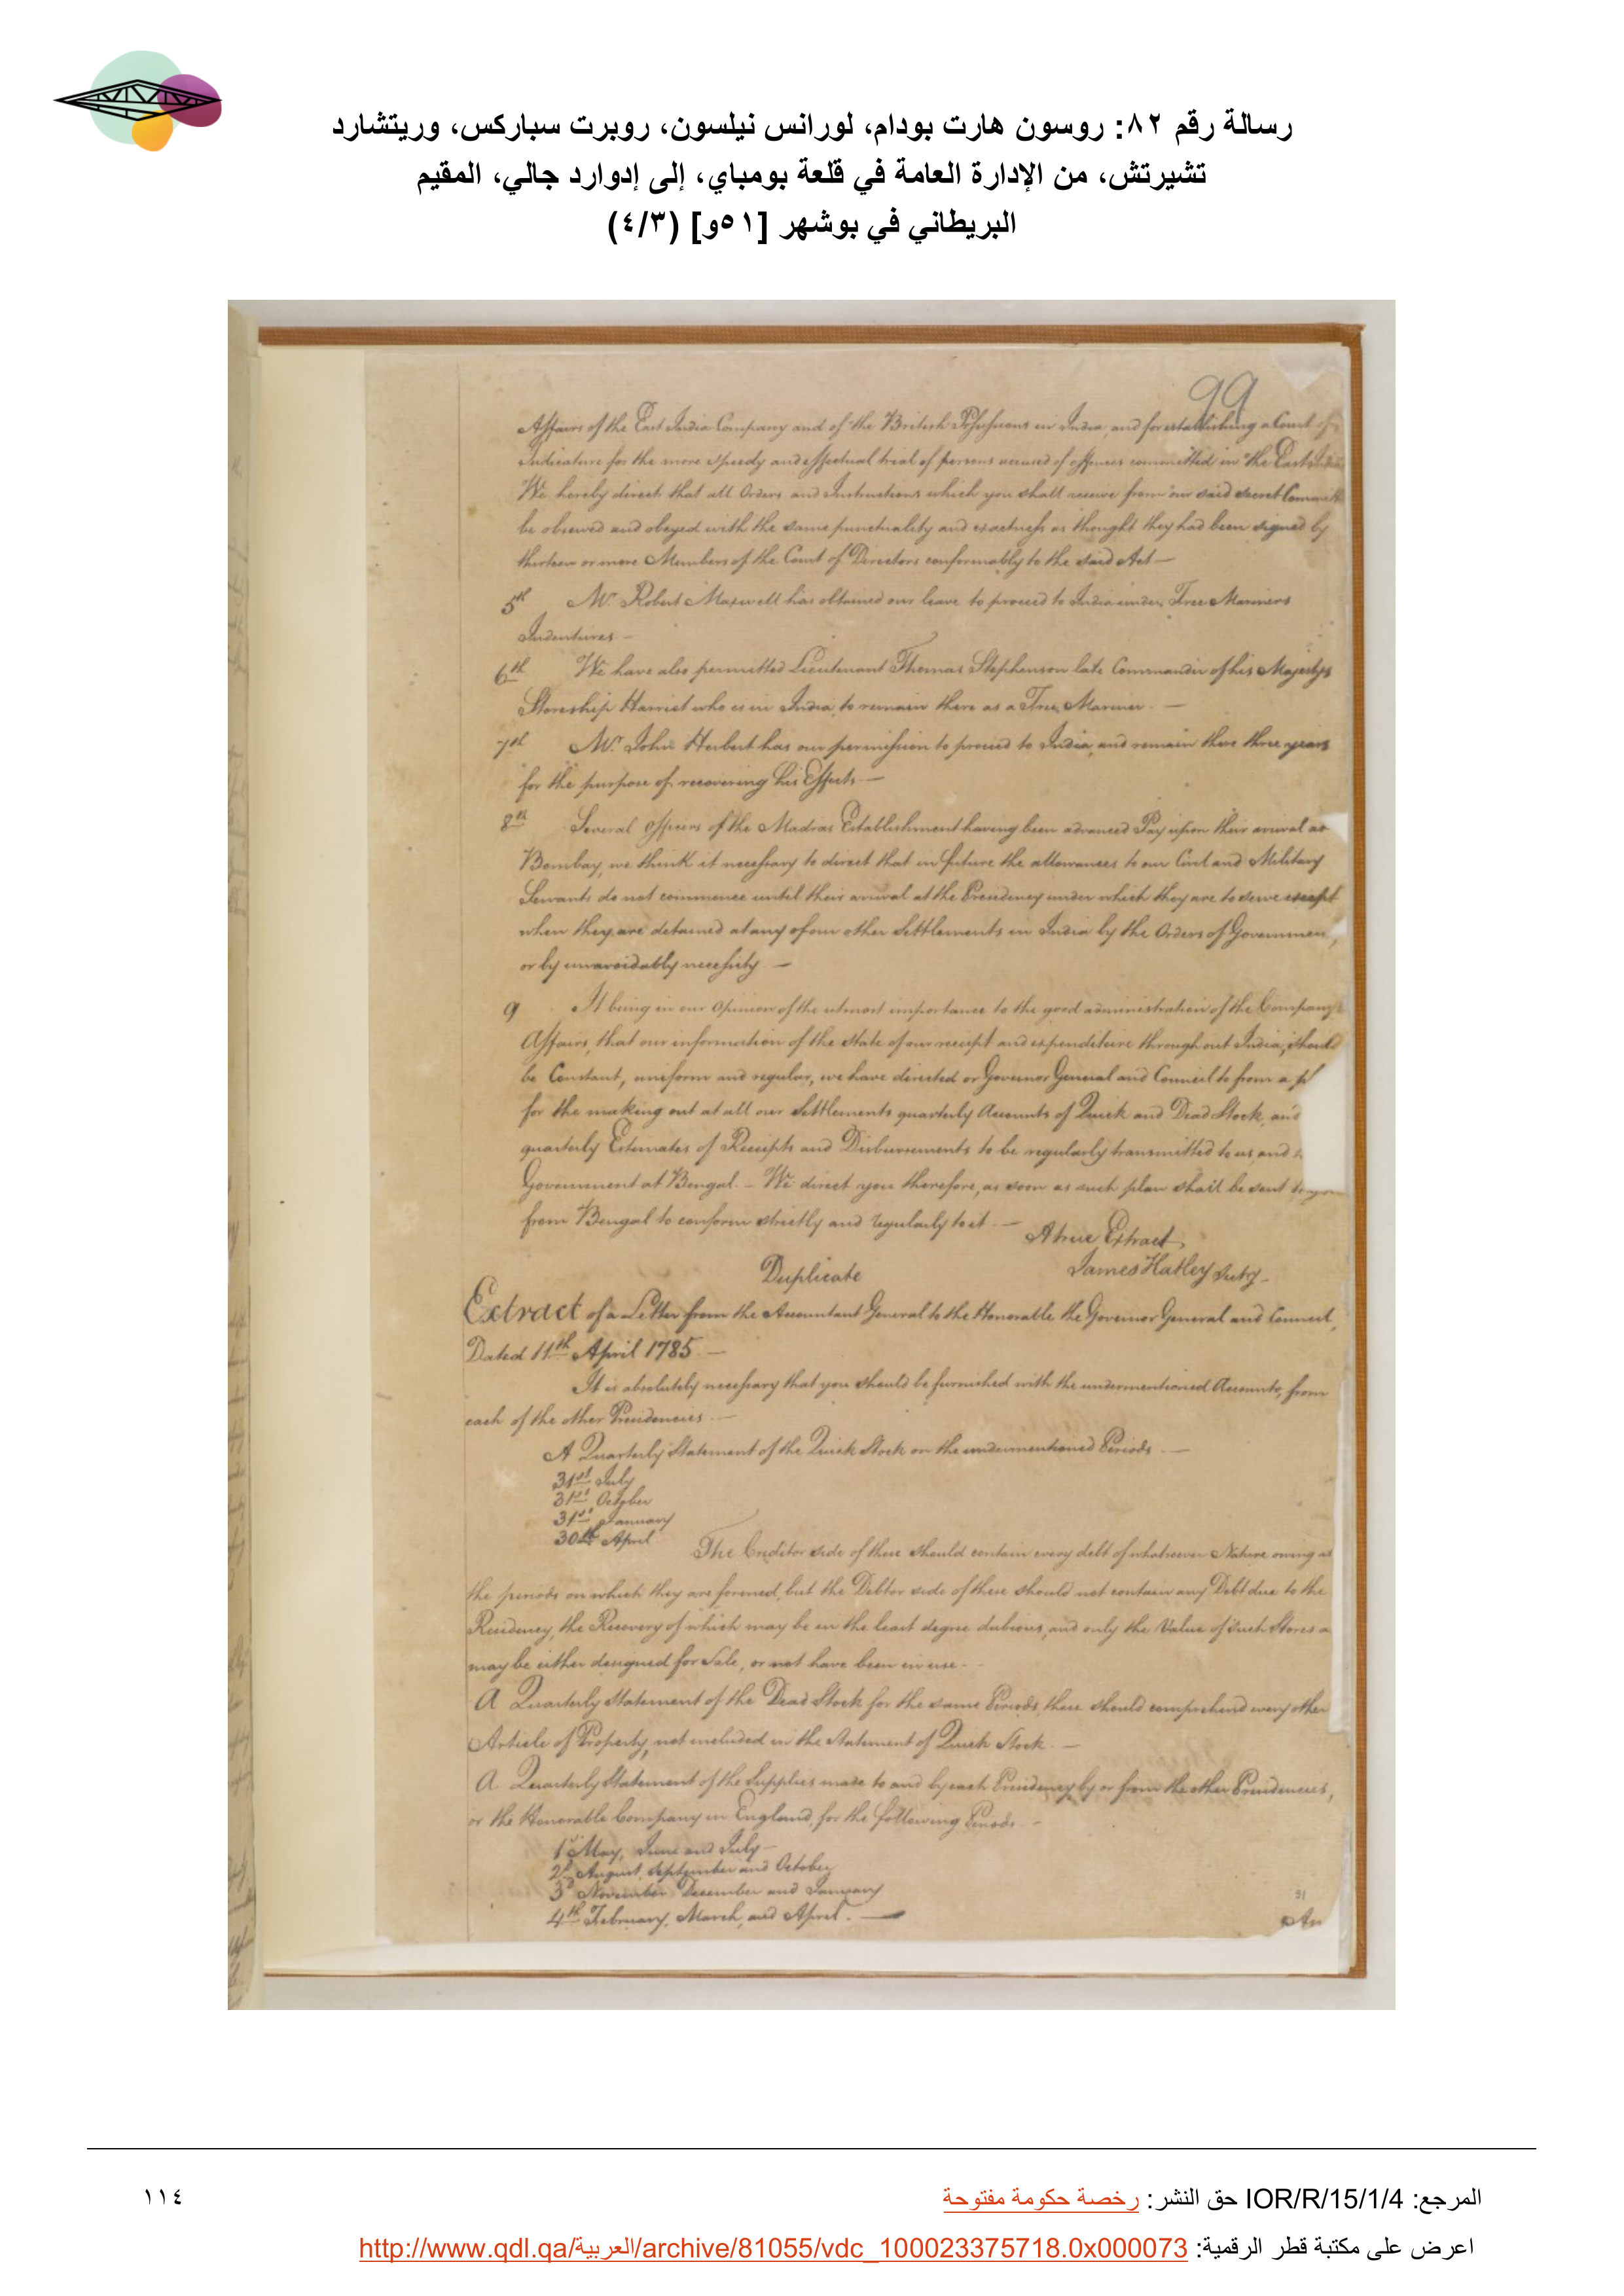 رسالة رقم ٨٢: روسون هارت بودام، لورانس نيلسون، روبرت سباركس، وريتشارد
تشيرتش، من الإدارة العامة في قلعة بومباي، إلى إدوارد جالي، المقيم
البريطاني في بوشهر [٥١و] (٤/٣)
99
Affairs of the East India Company and of the British Possessions in India, and for establishing a Court of
Judicature for the more speedy and effectual trial of persons accused of offences committed in the East Indies
We hereby direct that all Orders and Instructions which you shall receive from our said Secret Committ
be observed and obeyed with the same punctuality and exactness as thought they had been signed by
thirteen or more Members of the Court of Directors conformably to the said Act —
5th Mr. Robert Maxwell has obtained our leave to proceed to India under Free Mariners
Indentures —
6th We have also permitted Lieutenant Thomas Stephenson late Commander of his Majestys
Storeship Harriet who is in India, to remain there as a Free Mariner. —
7th Mr. John Herbert has our permission to proceed to India, and remain there three years
for the purpose of recovering his Effects —
8th Several Officers of the Madras Establishment having been advanced Pay upon their arrival at
Bombay, we think it necessary to direct that in future the allowances to our Civil and Military
Servants do not commence until their arrival at the Presidency under which they are to serve except
when they are detained at any of our other Settlements in India by the Orders of Governmen
or by unavoidably necessity —
9 It being in our Opinion of the utmost importance to the good administration of the Companys
Affairs, that our information of the State of our receipt and expenditure throughout India, should
be Constant, uniform and regular, we have directed or Governor General and Council to from a pl
for the making out at all our Settlements quarterly Accounts of Quick and Dead Stock, and
quarterly Estimates of Receipts and Disbursements to be regularly transmitted to us, and
Government at Bengal. — We direct you therefore, as soon as such plan shall be sent to you
from Bengal to conform strictly and regularly to it. —
A true Extract
James Hatley Secty.
Duplicate
Extract of a Letter from the Accountant General to the Honorable the Governor General and Council,
Dated 11th April 1785 —
It is absolutely necessary that you should be furnished with the undermentioned Accounts, from
each of the other Presidencies. —
A Quarterly Statement of the Quick Stock on the undermentioned Periods. —
31st July
31st October
31st January
30th April
The Creditor side of these should contain every debt of whatsoever Nature owing at
the periods on which they are formed, but the Debtor side of these should not contain any Debt due to the
Residency, the Recovery of which may be in the least degree dubious, and only the Value of Such Stores a
may be either designed for Sale, or not have been in use. —
A Quarterly Statement of the Dead Stock for the same Periods, these should comprehend every other
Article of Property, not included in the Statement of Quick Stock. —
A Quarterly Statement of the Supplies made to and by each Presidency, by or from the other Presidencies,
or the Honorable Company in England, for the following Periods. —
1st May, June and July —
2d August, September and October
3d November December and January
4th February, March, and April. —
51
An
المرجع: IOR/R/15/1/4 حق النشر: رخصة حكومة مفتوحة
١١٤
اعرض على مكتبة قطر الرقمية: http://www.qdl.qa/العربية/archive/81055/vdc_100023375718.0x000073